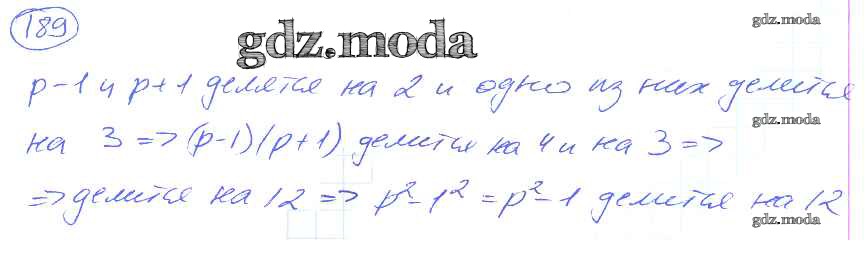 189
gdz.moda
gdz.moda
p-1 и p+1 делятся на 2 и одно из них делится
gdz.moda
на 3 => (p-1)(p+1) делится на 4 и на 3 =>
=> делится на 12 => p²-1² = p²-1 делится на 12
gdz.moda